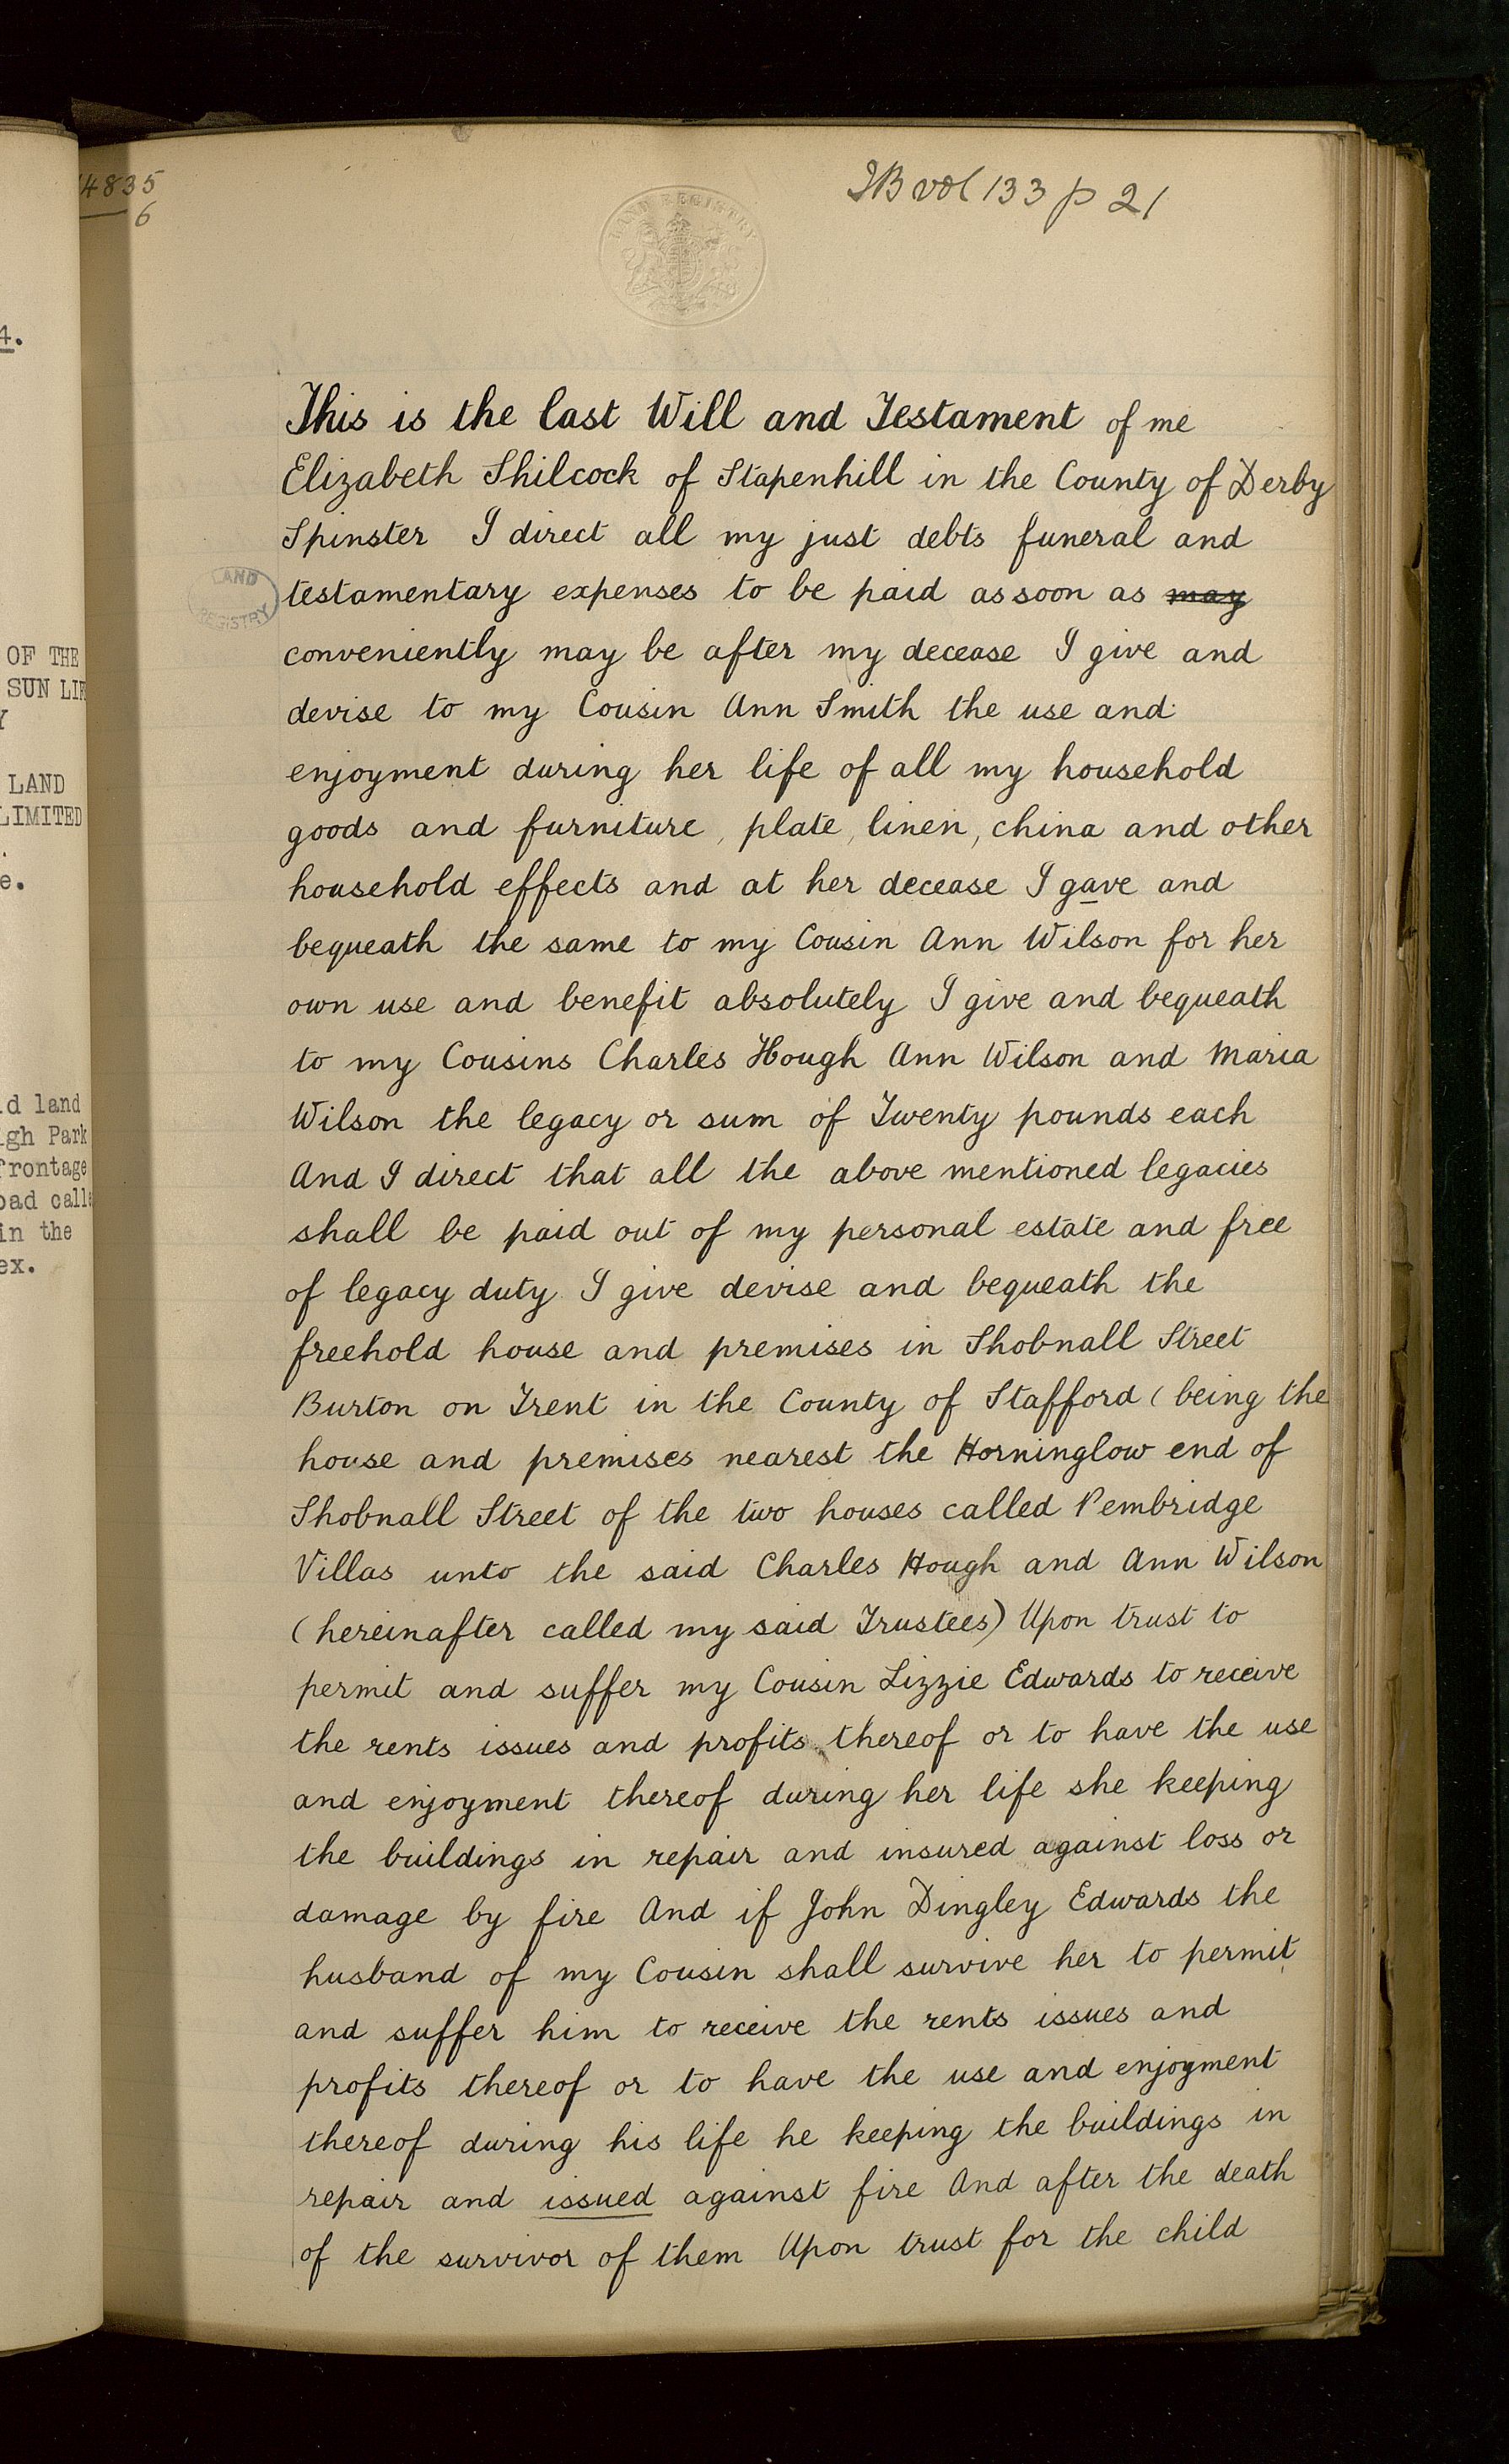 4835
6
vol 133 p 21
LAND REGISTRY
4.
This is the last Will and Testament of me
Elizabeth Shilcock of Stapenhill in the County of Derby
Spinster I direct all my just debts funeral and
testamentary expenses to be paid as soon as may
LAND REGISTRY
conveniently may be after my decease I give and
devise to my Cousin Ann Smith the use and
enjoyment during her life of all my household
goods and furniture, plate, linen, china and other
household effects and at her decease I gave and
bequeath the same to my Cousin Ann Wilson for her
own use and benefit absolutely I give and bequeath
to my Cousins Charles Hough Ann Wilson and Maria
Wilson the legacy or sum of Twenty pounds each
And I direct that all the above mentioned legacies
shall be paid out of my personal estate and free
of legacy duty I give devise and bequeath the
freehold house and premises in Shobnall Street
Burton on Trent in the County of Stafford (being the
house and premises nearest the Horninglow end of
Shobnall Street of the two houses called Pembridge
Villas unto the said Charles Hough and Ann Wilson
(hereinafter called my said Trustees) Upon trust to
permit and suffer my Cousin Lizzie Edwards to receive
the rents issues and profits thereof or to have the use
and enjoyment thereof during her life she keeping
the buildings in repair and insured against loss or
damage by fire And if John Dingley Edwards the
husband of my Cousin shall survive her to permit
and suffer him to receive the rents issues and
profits thereof or to have the use and enjoyment
thereof during his life he keeping the buildings in
repair and issued against fire And after the death
of the survivor of them Upon trust for the child
OF THE
SUN LIF
Y
LAND
LIMITED
e.
d land
gh Park
frontage
oad call
in the
ex.